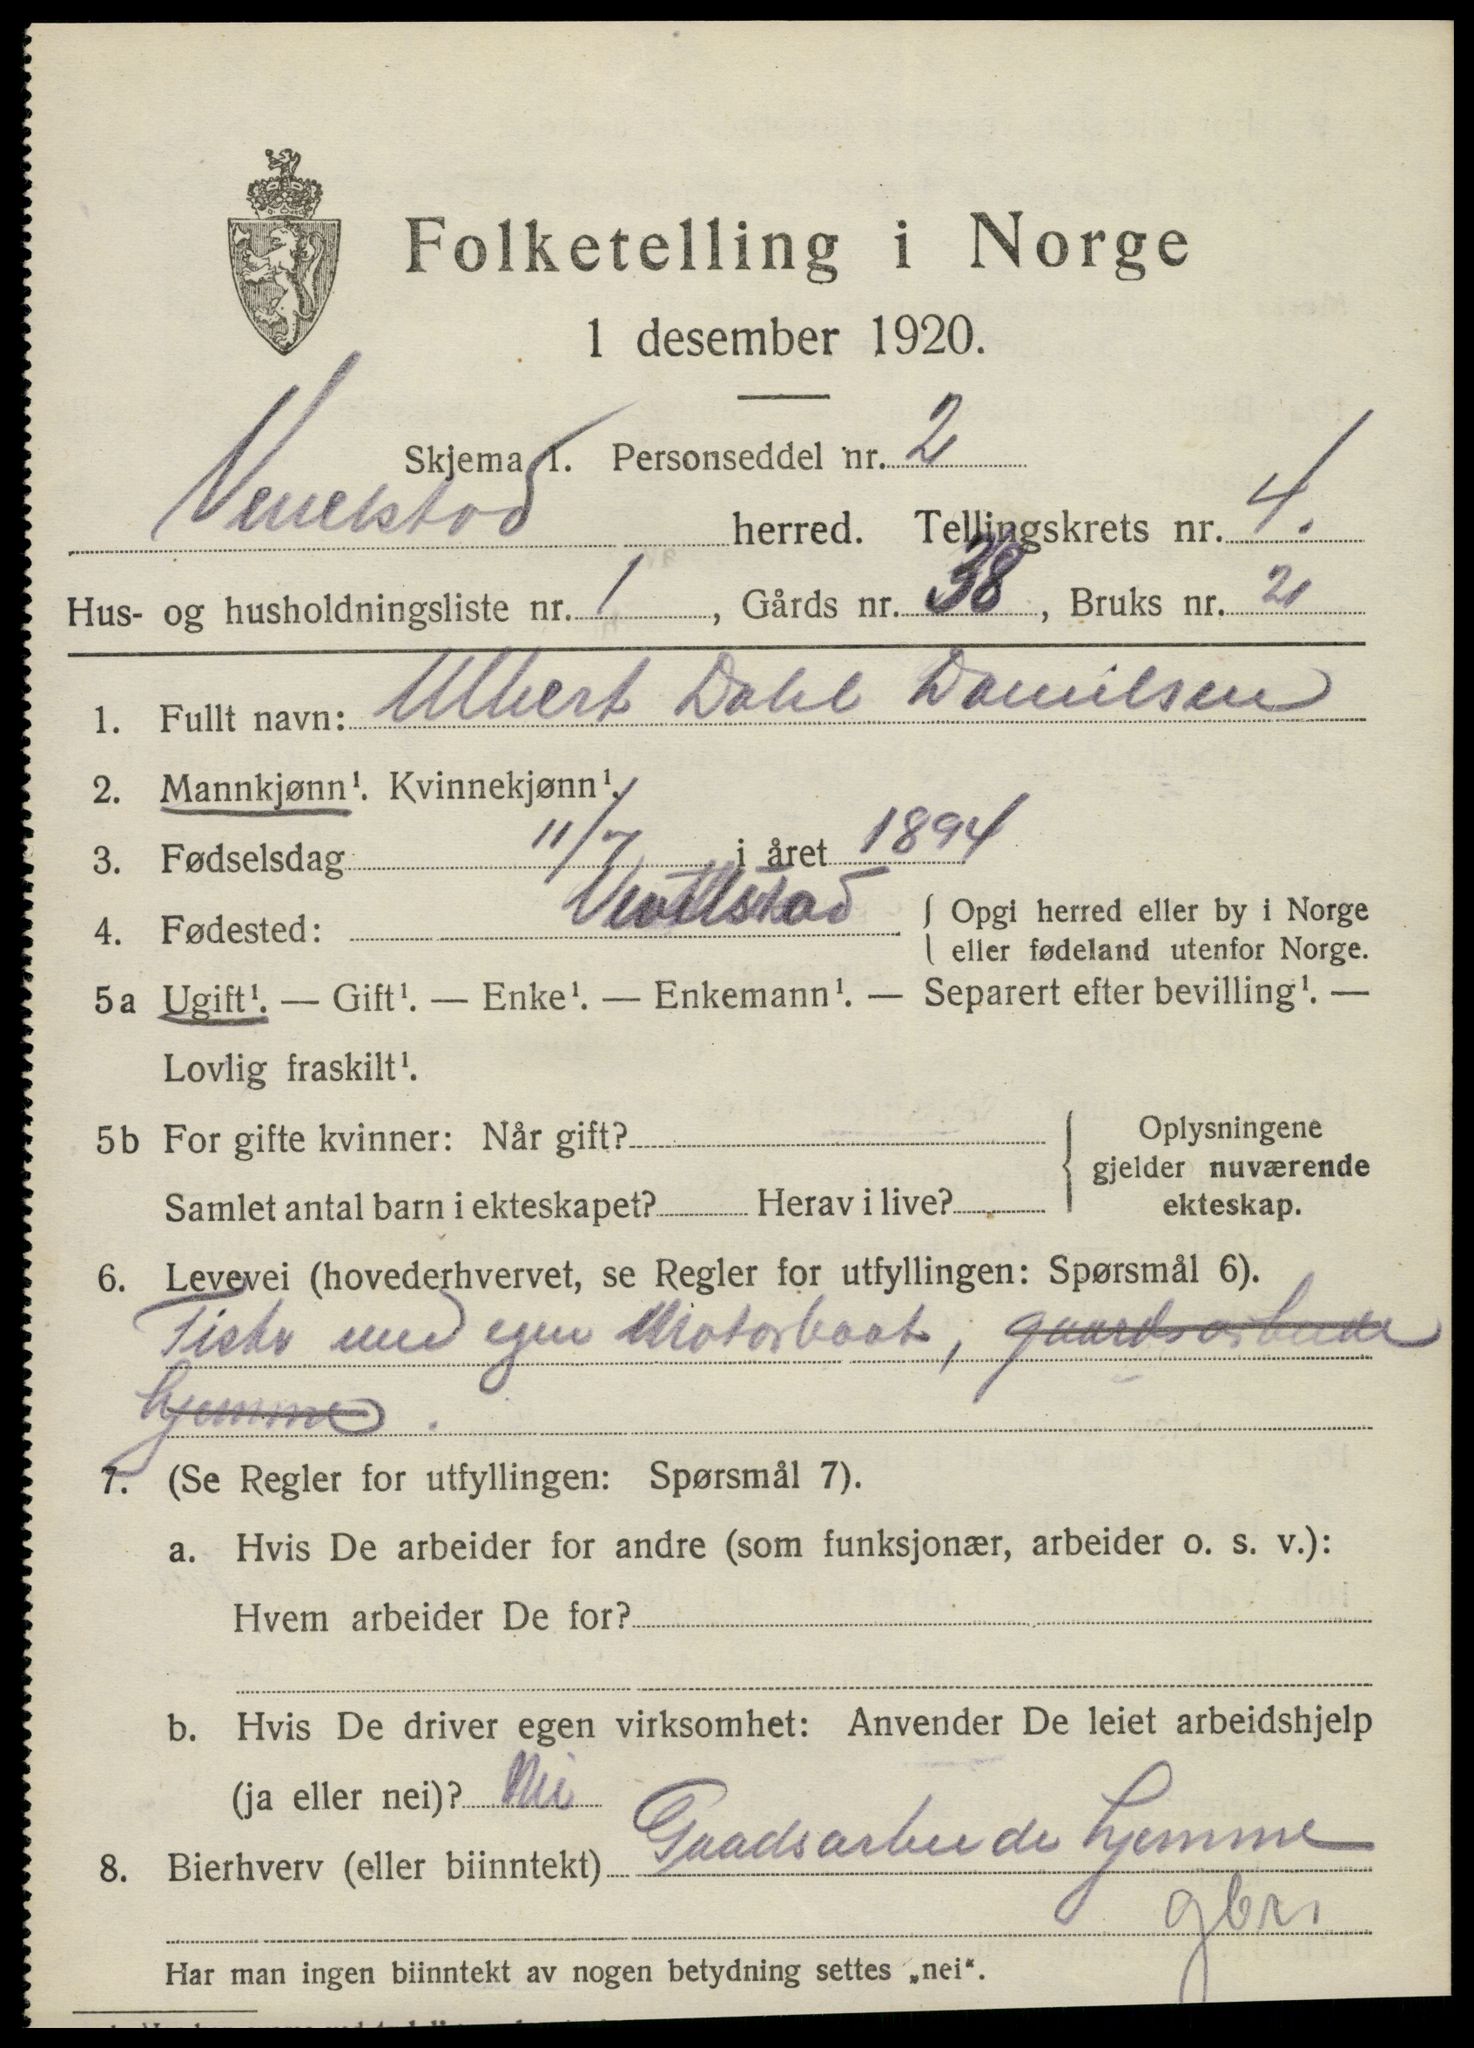 Folketelling i Norge
1 desember 1920.
Skjema 1. Personseddel nr. 2
Vevelstad herred. Tellingskrets nr. 4.
Hus- og husholdningsliste nr. 1, Gårds nr. 38, Bruks nr. 2
1. Fullt navn: Albert Dahl Danielsen
2. Mannkjønn¹. Kvinnekjønn¹.
3. Fødselsdag 11/7 i året 1894
4. Fødested: Vevelstad { Opgi herred eller by i Norge
eller fødeland utenfor Norge.
5a Ugift¹. — Gift¹. — Enke¹. — Enkemann¹. — Separert efter bevilling¹. —
Lovlig fraskilt¹.
5b For gifte kvinner: Når gift? { Oplysningene
gjelder nuværende
Samlet antal barn i ekteskapet? Herav i live? ekteskap.
6. Levevei (hovederhvervet, se Regler for utfyllingen: Spørsmål 6).
Fisker med egen Motorbaat, gaardsarbeide
hjemme.
7. (Se Regler for utfyllingen: Spørsmål 7).
a. Hvis De arbeider for andre (som funksjonær, arbeider o. s. v.):
Hvem arbeider De for?
b. Hvis De driver egen virksomhet: Anvender De leiet arbeidshjelp
(ja eller nei)? Nei
8. Bierhverv (eller biinntekt) Gaadsarbeide hjemme
gbr1
Har man ingen biinntekt av nogen betydning settes „nei“.